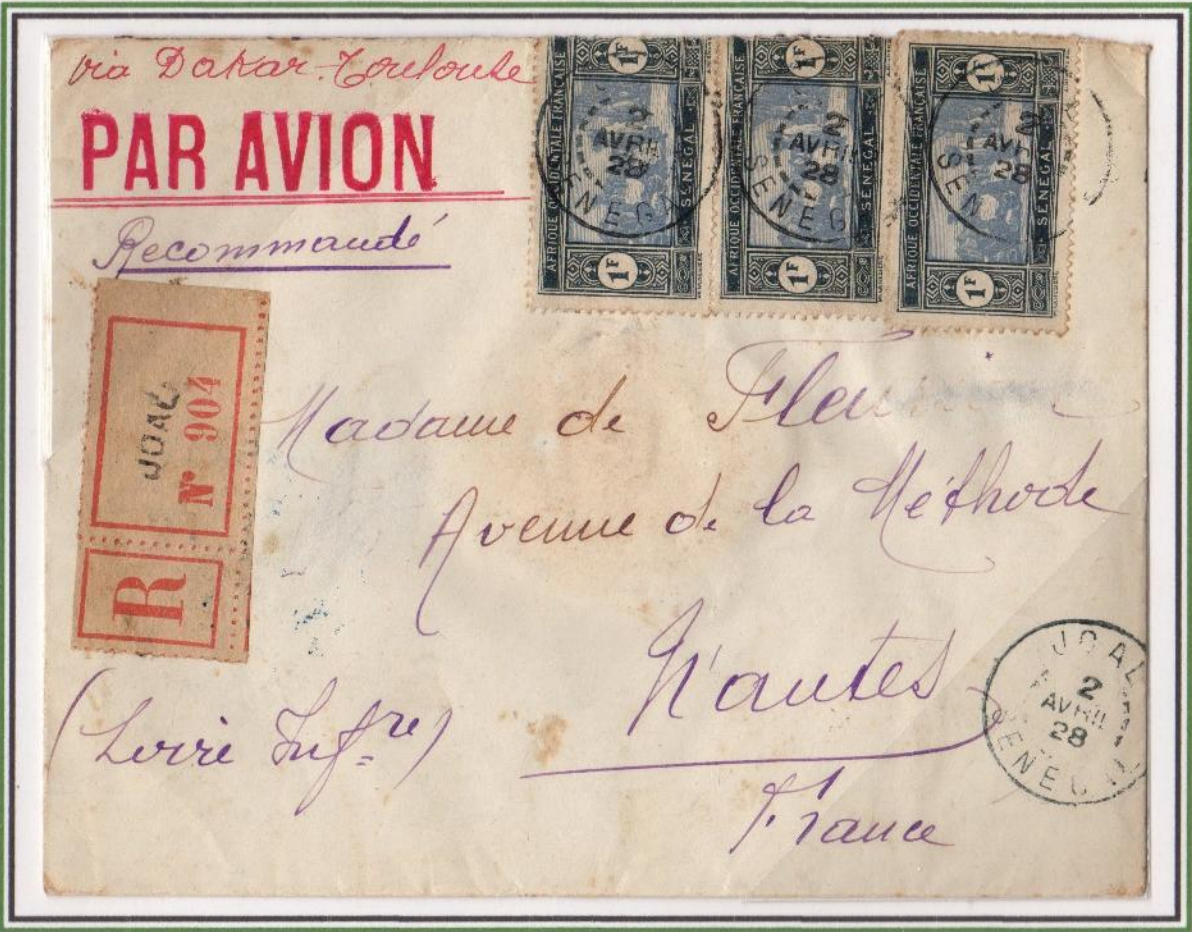 via Dakar-Toulouse
PAR AVION
Recommandé
1F
AFRIQUE OCCIDENTALE FRANÇAISE
SÉNÉGAL
1F
2
AVRIL
28
SENEGA
1F
AFRIQUE OCCIDENTALE FRANÇAISE
SÉNÉGAL
1F
2
AVRIL
28
SENEGA
1F
AFRIQUE OCCIDENTALE FRANÇAISE
SÉNÉGAL
1F
2
AVRI
28
SEN
JOAL
N° 904
R
Madame de
Avenue de la Méthode
Nantes
(Loire Infre)
France
JOAL
2
AVRIL
28
SENEGAL